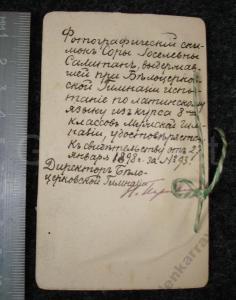 Фотографическiй сни-
мокъ Соры Іоселевны
Салитанъ, выдержав-
шей при Бѣлоцерков-
ской Гимназiи испы-
танiе по латинскому
языку изъ курса 8-ми
классовъ Мужской гим-
назiи, удостовѣряется.
Къ свидѣтельству отъ 23
января 1898 г. за № 93
Директоръ Бѣло-
церковской Гимназiи